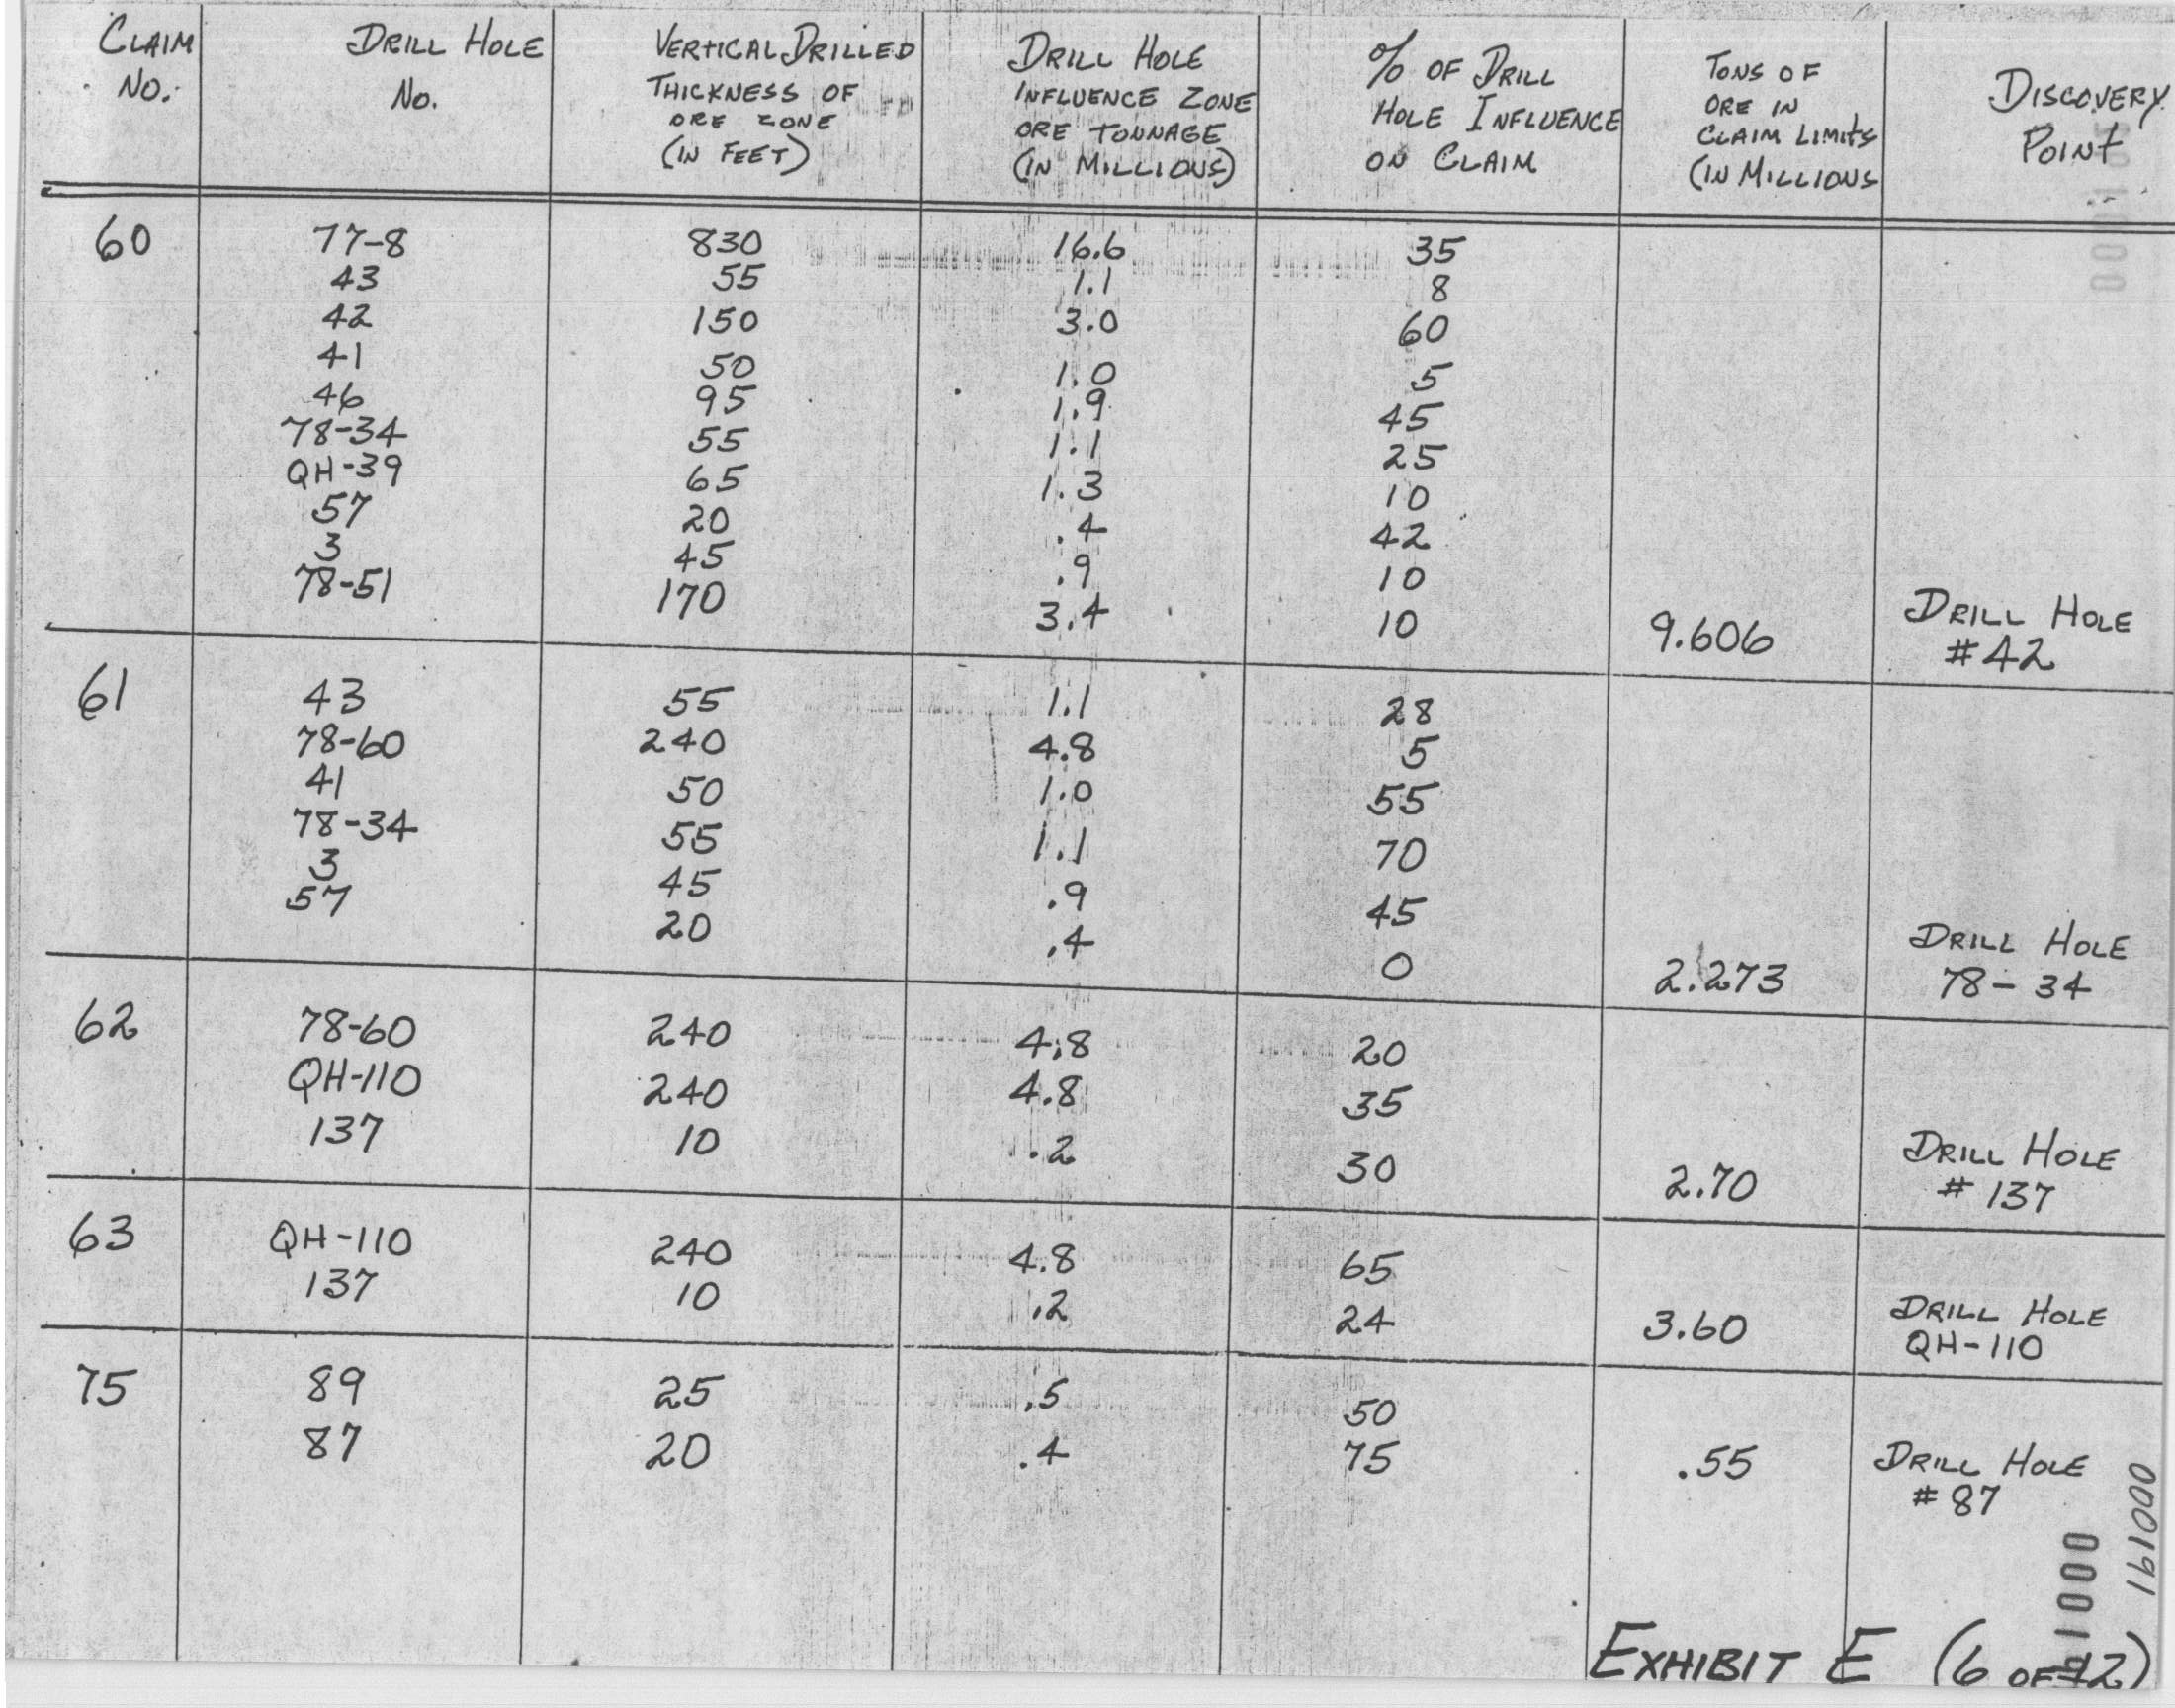 CLAIM NO. DRILL HOLE No. VERTICAL DRILLED THICKNESS OF ORE ZONE (IN FEET) DRILL HOLE INFLUENCE ZONE ORE TONNAGE (IN MILLIONS) % OF DRILL HOLE INFLUENCE ON CLAIM TONS OF ORE IN CLAIM LIMITS (IN MILLIONS DISCOVERY POINT
60 77-8 830 16.6 35
43 55 1.1 8
42 150 3.0 60
41 50 1.0 5
46 95 1.9 45
78-34 55 1.1 25
QH-39 65 1.3 10
57 20 .4 42
3 45 .9 10
78-51 170 3.4 10 9.606 DRILL HOLE #42
61 43 55 1.1 28
78-60 240 4.8 5
41 50 1.0 55
78-34 55 1.1 70
3 45 .9 45
57 20 .4 0 2.273 DRILL HOLE 78-34
62 78-60 240 4.8 20
QH-110 240 4.8 35
137 10 .2 30 2.70 DRILL HOLE # 137
63 QH-110 240 4.8 65
137 10 .2 24 3.60 DRILL HOLE QH-110
75 89 25 .5 50
87 20 .4 75 .55 DRILL HOLE # 87
000191
EXHIBIT E (6 OF 12)